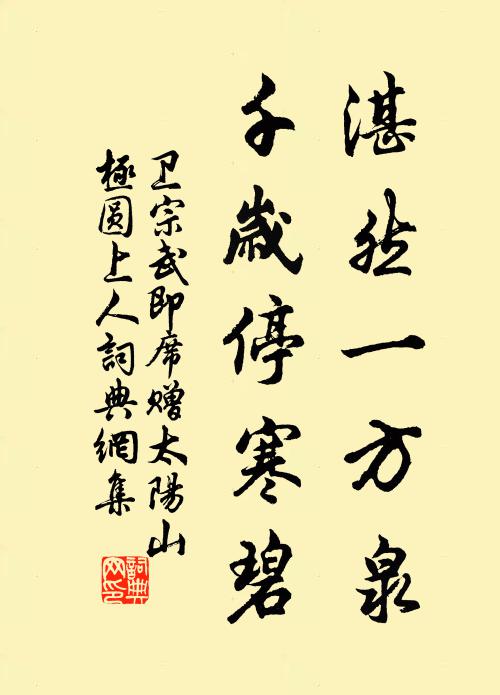 湛然一方泉
千歲停寒碧
卫宗武即席赠太陽山
極圆上人詞典網集
詞典网印